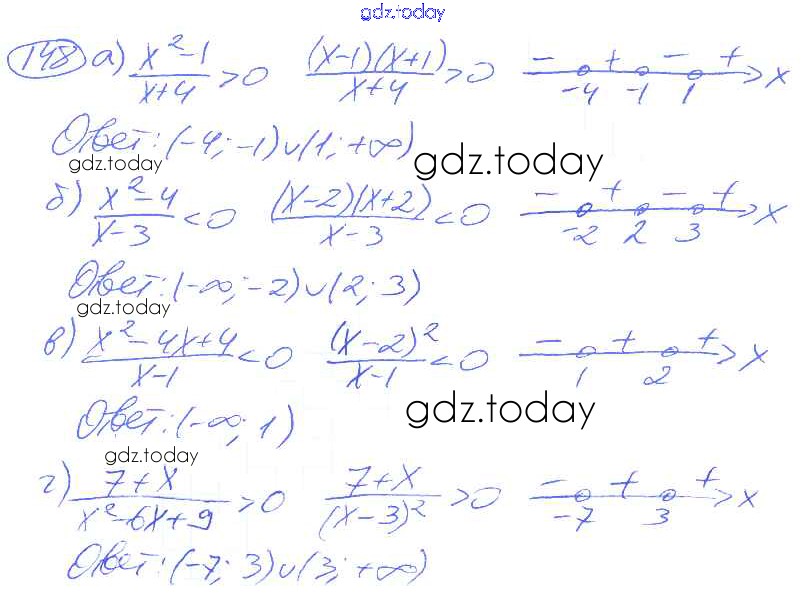 gdz.today
148 а) (x²-1)/(x+4) > 0 ((x-1)(x+1))/(x+4) > 0 - + - + -4 -1 1 x
Ответ: (-4; -1)∪(1; +∞)
gdz.today gdz.today
б) (x²-4)/(x-3) < 0 ((x-2)(x+2))/(x-3) < 0 - + - + -2 2 3 x
Ответ: (-∞; -2)∪(2; 3)
gdz.today
в) (x²-4x+4)/(x-1) < 0 (x-2)²/(x-1) < 0 - + + 1 2 x
Ответ: (-∞; 1)
gdz.today
gdz.today
г) (7+x)/(x²-6x+9) > 0 (7+x)/(x-3)² > 0 - + + -7 3 x
Ответ: (-7; 3)∪(3; +∞)